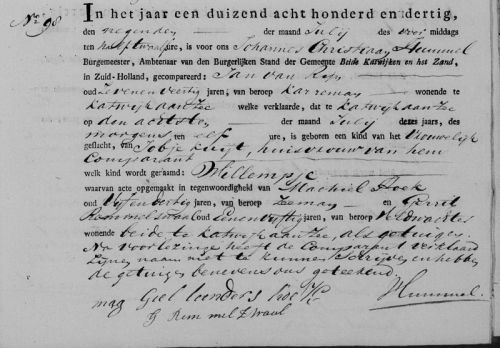 No 98
In het jaar een duizend acht honderd en dertig,
den negenden der maand July des voor middags
ten half twaalf ure, is voor ons Johannes Christiaan Hummel
Burgemeester, Ambtenaar van den Burgerlijken Stand der Gemeente Beide Katwijken en het Zand,
in Zuid-Holland, gecompareerd: Jan van Rijn
oud zevenenveertig jaren, van beroep karreman wonende te
Katwijk aan Zee welke verklaarde, dat te Katwijk aan Zee
op den achtsten der maand July dezes jaars, des
morgens ten elf ure, is geboren een kind van het Vrouwelijk
geslacht, van huisvrouw van hem
Comparant
welk kind word genaamd: Willempje
waarvan acte opgemaakt in tegenwoordigheid van Machiel Hoek
oud vijfendertig jaren, van beroep Zeeman en Gerrit
Remmelzwaal oud jaren, van beroep Veldwachter
wonende beide te Katwijk aan Zee, als getuigen.
Na voorlezinge heeft de Comparant verklaard
zijnen naam niet te kunnen schrijven en hebben
de getuigen benevens ons geteekend.
mag Giel Hoek
G Rem mel Z waal
Hummel.